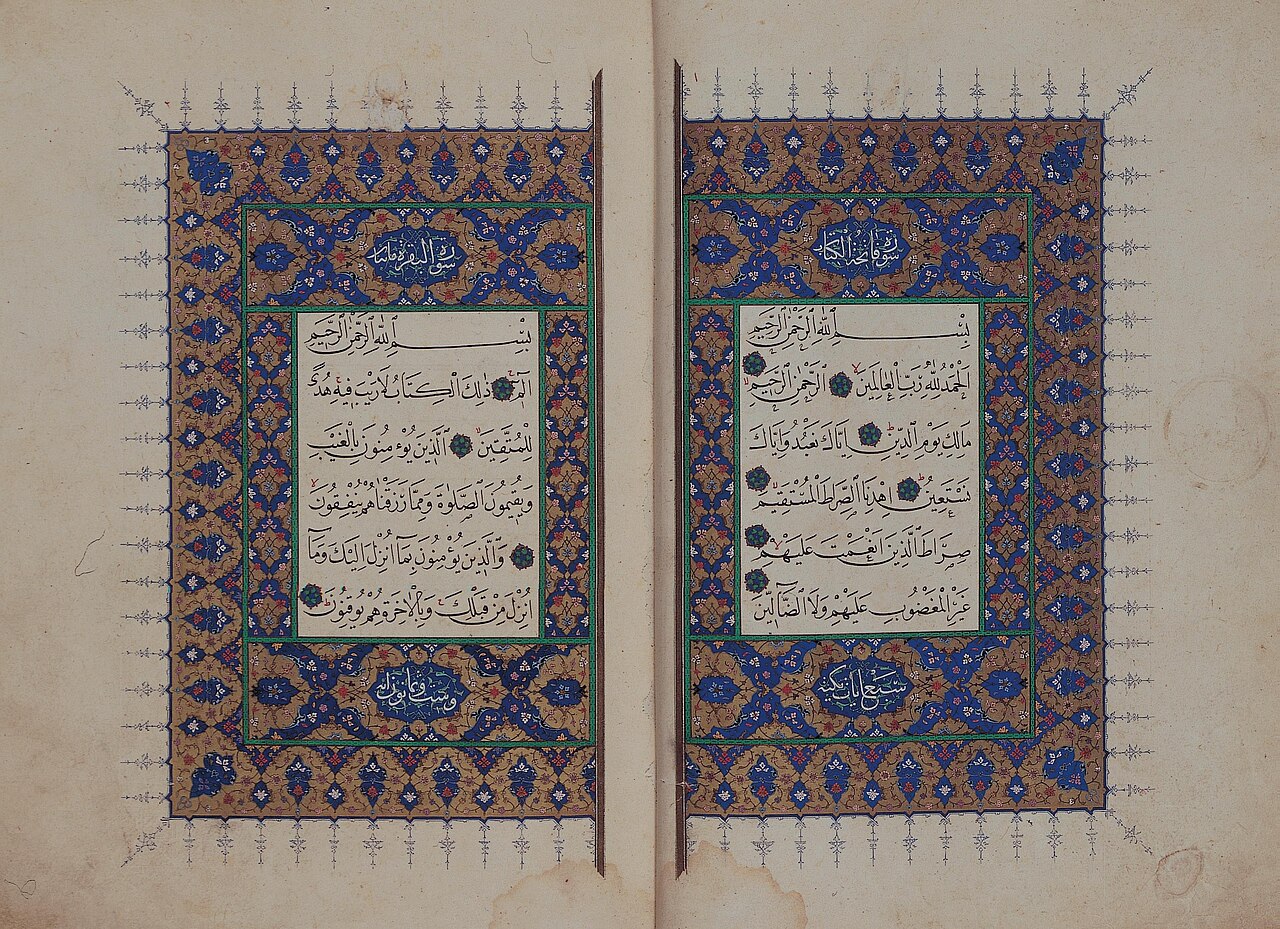 سورة فاتحة الكتاب
بِسْمِ اللهِ الرَّحْمٰنِ الرَّحِيمِ
اَلْحَمْدُ لِلّٰهِ رَبِّ الْعَالَمِينَ الرَّحْمٰنِ الرَّحِيمِ
مَالِكِ يَوْمِ الدِّينِ اِيَّاكَ نَعْبُدُ وَاِيَّاكَ
نَسْتَعِينُ اِهْدِنَا الصِّرَاطَ الْمُسْتَقِيمَ
صِرَاطَ الَّذِينَ اَنْعَمْتَ عَلَيْهِمْ
غَيْرِ الْمَغْضُوبِ عَلَيْهِمْ وَلَا الضَّآلِّينَ
سبع ايات مكية
سورة البقرة مائتان
بِسْمِ اللهِ الرَّحْمٰنِ الرَّحِيمِ
الٓمٓ ذٰلِكَ الْكِتَابُ لَا رَيْبَ فِيهِ هُدًى
لِلْمُتَّقِينَ اَلَّذِينَ يُؤْمِنُونَ بِالْغَيْبِ
وَيُقِيمُونَ الصَّلٰوةَ وَمِمَّا رَزَقْنَاهُمْ يُنْفِقُونَ
وَالَّذِينَ يُؤْمِنُونَ بِمَآ اُنْزِلَ اِلَيْكَ وَمَآ
اُنْزِلَ مِنْ قَبْلِكَ وَبِالْاٰخِرَةِ هُمْ يُوقِنُونَ
وست وثمانون اية